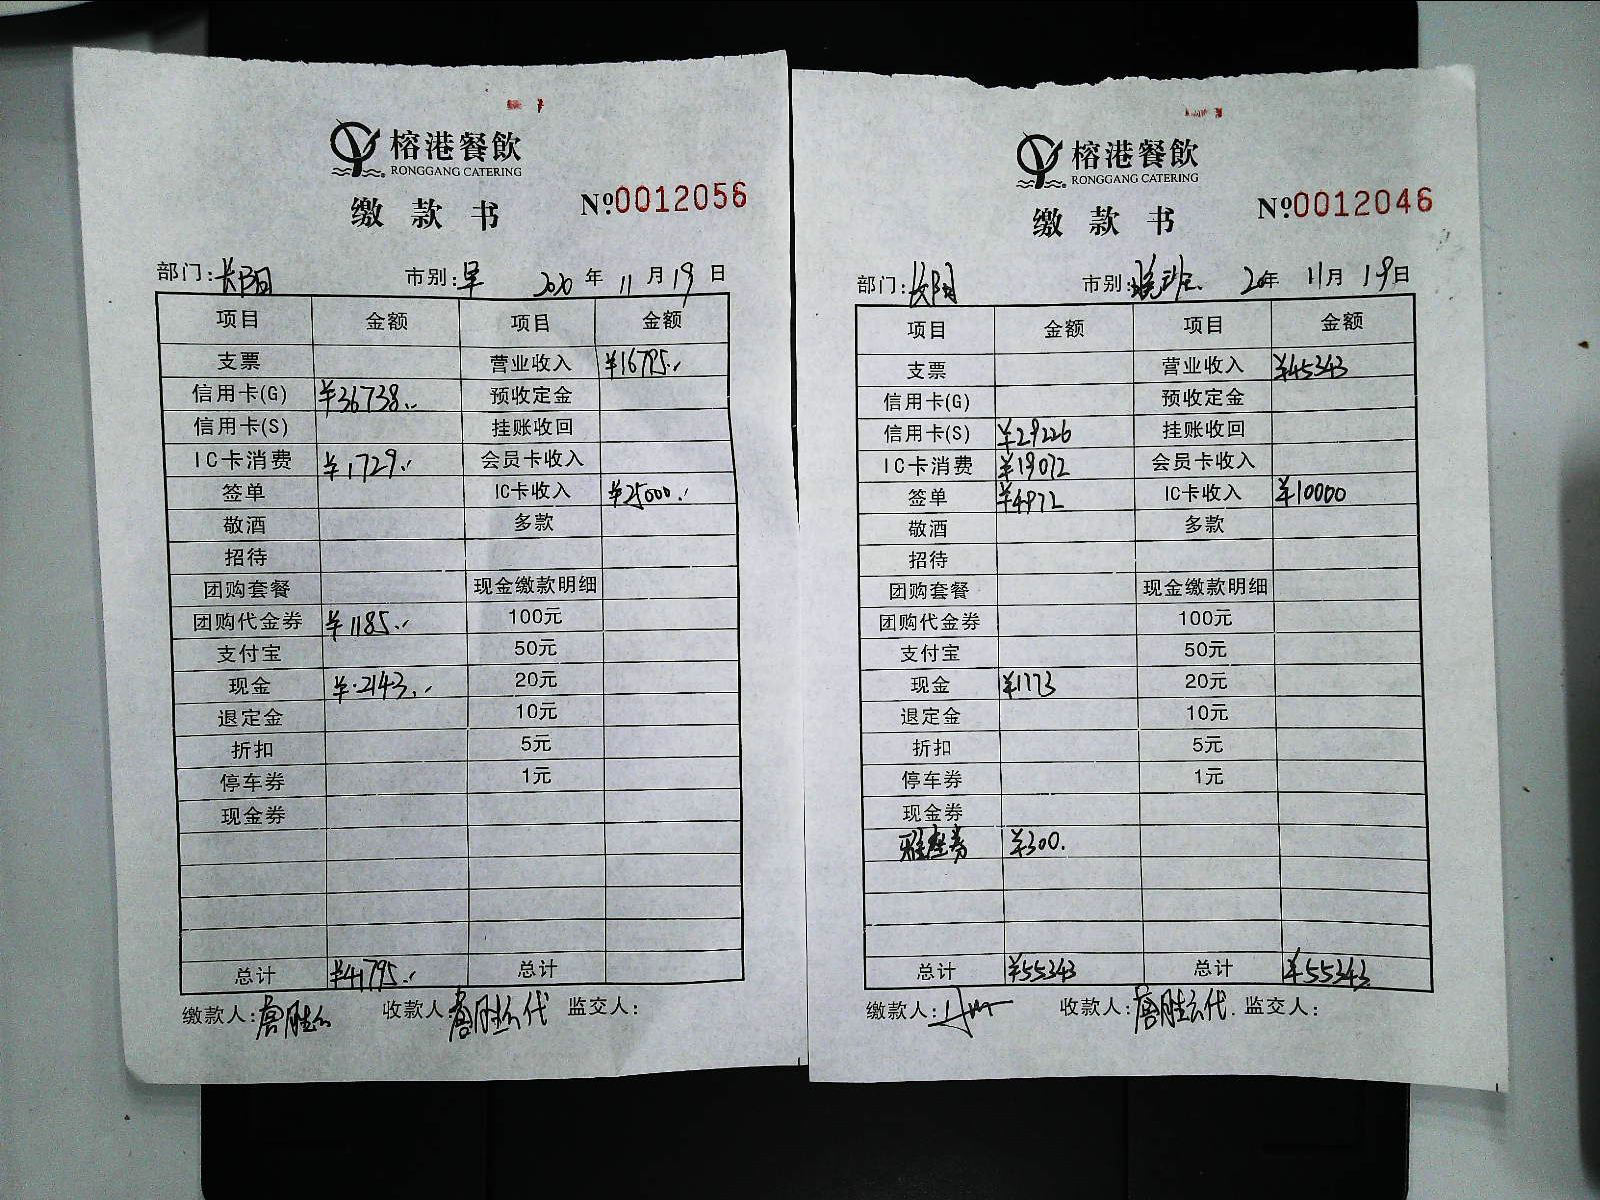 榕港餐飲
RONGGANG CATERING
缴款书 №0012056
部门:长阳 市别:早 2020年11月19日
项目 金额 项目 金额
支票 营业收入 ¥16795
信用卡(G) ¥36738 预收定金
信用卡(S) 挂账收回
IC卡消费 ¥1729 会员卡收入
签单 IC卡收入 ¥25000
敬酒 多款
招待
团购套餐 现金缴款明细
团购代金券 ¥1185 100元
支付宝 50元
现金 ¥2143 20元
退定金 10元
折扣 5元
停车券 1元
现金券
总计 ¥41795 总计
缴款人:唐胜云 收款人:唐胜云代 监交人:
榕港餐飲
RONGGANG CATERING
缴款书 №0012046
部门:长阳 市别:晚班 20年11月19日
项目 金额 项目 金额
支票 营业收入 ¥45343
信用卡(G) 预收定金
信用卡(S) ¥29226 挂账收回
IC卡消费 ¥19072 会员卡收入
签单 ¥4972 IC卡收入 ¥10000
敬酒 多款
招待
团购套餐 现金缴款明细
团购代金券 100元
支付宝 50元
现金 ¥1773 20元
退定金 10元
折扣 5元
停车券 1元
现金券
雅座券 ¥300.
总计 ¥55343 总计 ¥55343
缴款人: 收款人:唐胜云代. 监交人: